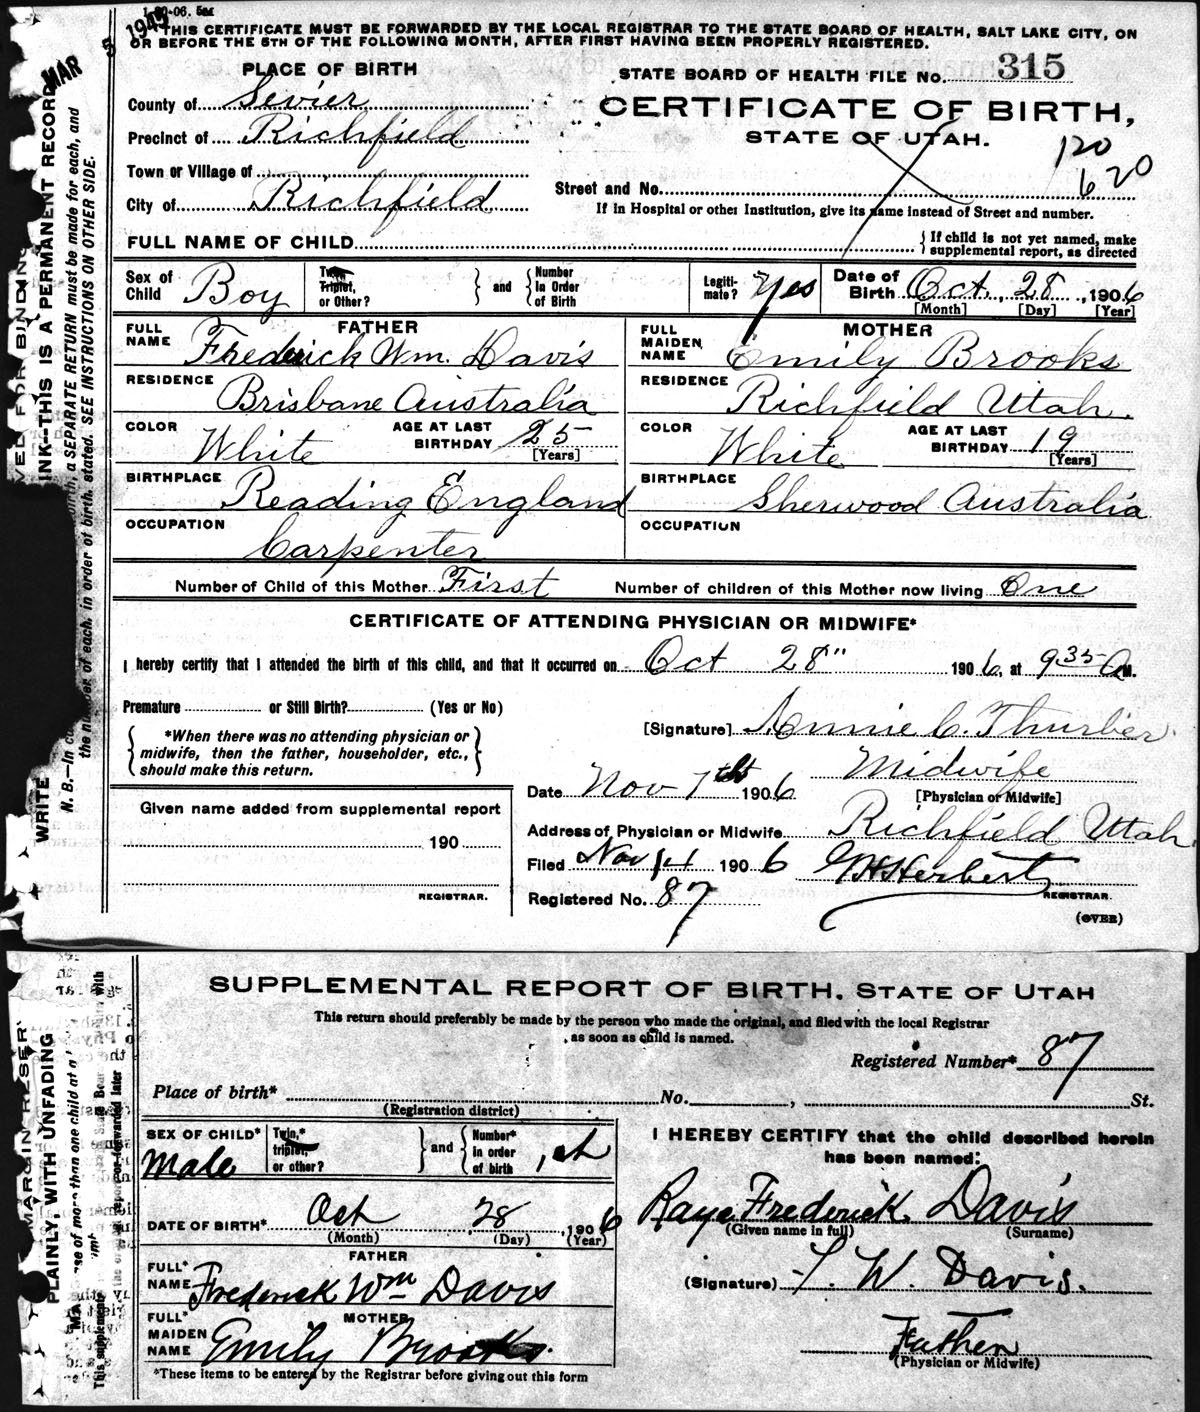 1-20-06. 5m
MAR 5 1943
THIS CERTIFICATE MUST BE FORWARDED BY THE LOCAL REGISTRAR TO THE STATE BOARD OF HEALTH, SALT LAKE CITY, ON
OR BEFORE THE 5TH OF THE FOLLOWING MONTH, AFTER FIRST HAVING BEEN PROPERLY REGISTERED.
PLACE OF BIRTH
STATE BOARD OF HEALTH FILE No. 315
County of Sevier
CERTIFICATE OF BIRTH,
Precinct of Richfield
STATE OF UTAH.
120
620
Town or Village of
Street and No.
City of Richfield
If in Hospital or other Institution, give its name instead of Street and number.
FULL NAME OF CHILD
{If child is not yet named, make
supplemental report, as directed
Sex of Child Boy
Twin, Triplet, or Other? } and { Number in Order of Birth
Legitimate? Yes
Date of Birth Oct. 28, 1906
[Month] [Day] [Year]
FATHER
FULL NAME Frederick Wm. Davis
RESIDENCE Brisbane Australia
COLOR White
AGE AT LAST BIRTHDAY 25
[Years]
BIRTHPLACE Reading England
OCCUPATION Carpenter
MOTHER
FULL MAIDEN NAME Emily Brooks
RESIDENCE Richfield Utah.
COLOR White
AGE AT LAST BIRTHDAY 19
[Years]
BIRTHPLACE Sherwood Australia
OCCUPATION
Number of Child of this Mother First Number of children of this Mother now living One
CERTIFICATE OF ATTENDING PHYSICIAN OR MIDWIFE*
I hereby certify that I attended the birth of this child, and that it occurred on Oct 28" 1906, at 9 35 A M.
Premature or Still Birth? (Yes or No)
{*When there was no attending physician or
midwife, then the father, householder, etc.,
should make this return.}
[Signature] Annie C. Thurber
Midwife
Date Nov 7th 1906 [Physician or Midwife]
Given name added from supplemental report
190
REGISTRAR.
Address of Physician or Midwife Richfield Utah
Filed Nov 14 1906 G H Herbert
REGISTRAR.
Registered No. 87
(OVER)
INK—THIS IS A PERMANENT RECORD
a SEPARATE RETURN must be made for each, and
the number of each, in order of birth, stated. SEE INSTRUCTIONS ON OTHER SIDE.
WRITE
N. B.—In
SUPPLEMENTAL REPORT OF BIRTH. STATE OF UTAH
This return should preferably be made by the person who made the original, and filed with the local Registrar
as soon as child is named.
Registered Number* 87
Place of birth* No. , St.
(Registration district)
SEX OF CHILD* Male
Twin,* triplet, or other? } and { Number* in order of birth 1st
I HEREBY CERTIFY that the child described herein
has been named:
Raye Frederick Davis
(Given name in full) (Surname)
DATE OF BIRTH* Oct 28, 1906
(Month) (Day) (Year)
FATHER
FULL* NAME Frederick Wm Davis
(Signature) F. W. Davis.
MOTHER
FULL* MAIDEN NAME Emily Brooks.
Father
(Physician or Midwife)
*These items to be entered by the Registrar before giving out this form
PLAINLY, WITH UNFADING
more than one child at a